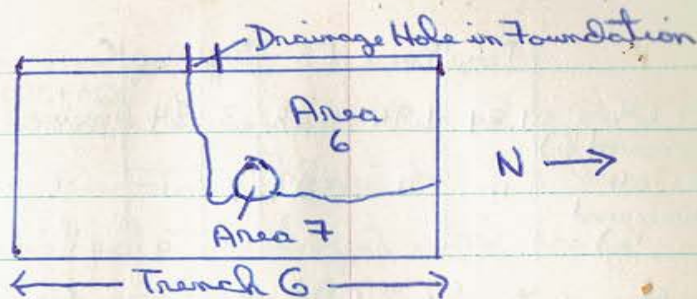 Drainage Hole in Foundation
Area
6
N
Area 7
Trench G